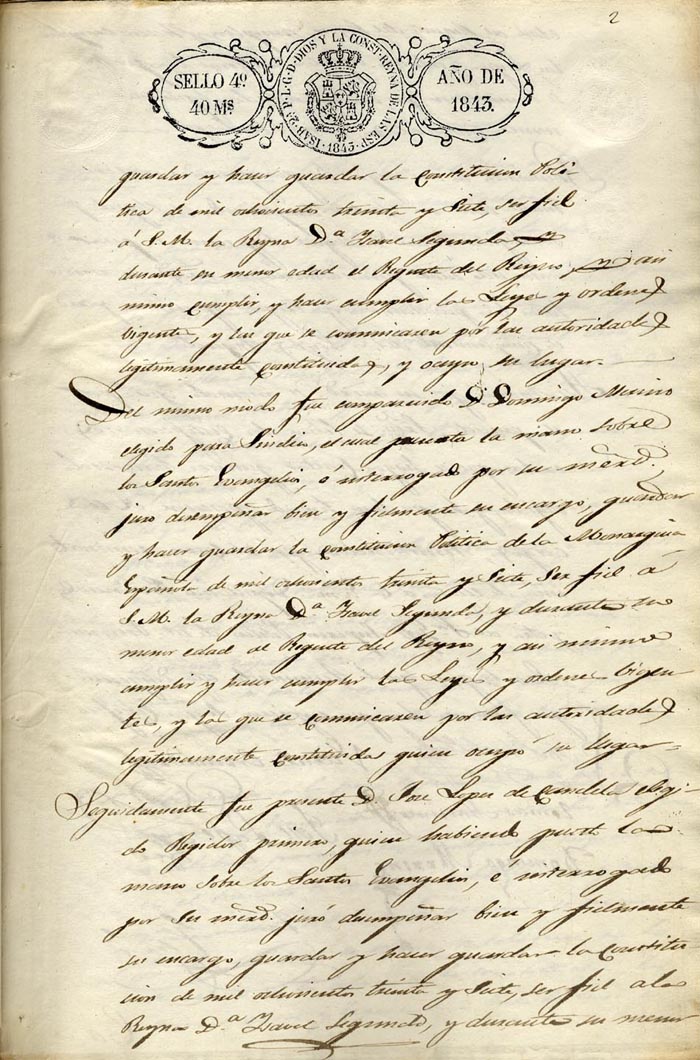 2
SELLO 4º
40 Ms.
ISAB. 2ª P. L. G. D. DIOS Y LA CONST. REYNA DE LAS ESP. 1843.
AÑO DE
1843.
guardar y hacer guardar la Constitucion Poli
tica de mil ochocientos treinta y Siete, ser fiel
á S. M. la Reyna D.ª Isavel Segunda, y
durante su menor edad el Regente del Reyno, y asi
mismo cumplir, y hacer cumplir las Leyes y ordenes
vigentes, y las que se comunicasen por las autoridades
legitimamente constituidas, y ocupo su lugar.
Del mismo modo fue comparecido D. Domingo Merino
elegido para Sindico, el cual puesta la mano sobre
los Santos Evangelios, é interrogado por su merd.
juro desempeñar bien y fielmente su encargo, guardar
y hacer guardar la Constitucion Politica de la Monarquia
Española de mil ochocientos treinta y Siete, ser fiel á
S. M. la Reyna D.ª Isavel Segunda, y durante su
menor edad al Regente del Reyno, y asi mismo
cumplir y hacer cumplir las Leyes y ordenes vigen
tes, y las que se comunicasen por las autoridades
legitimamente constituidas quien ocupó su lugar
Seguidamente fue presente D. Jose Lopez de elegi
do Regidor primero, quien habiendo puesto la
mano sobre los Santos Evangelios, e interrogado
por su merd. juró desempeñar bien y fielmente
su encargo, guardar y hacer guardar la Constitu
cion de mil ochocientos treinta y Siete, ser fiel a la
Reyna D.ª Isavel Segunda, y durante su menor